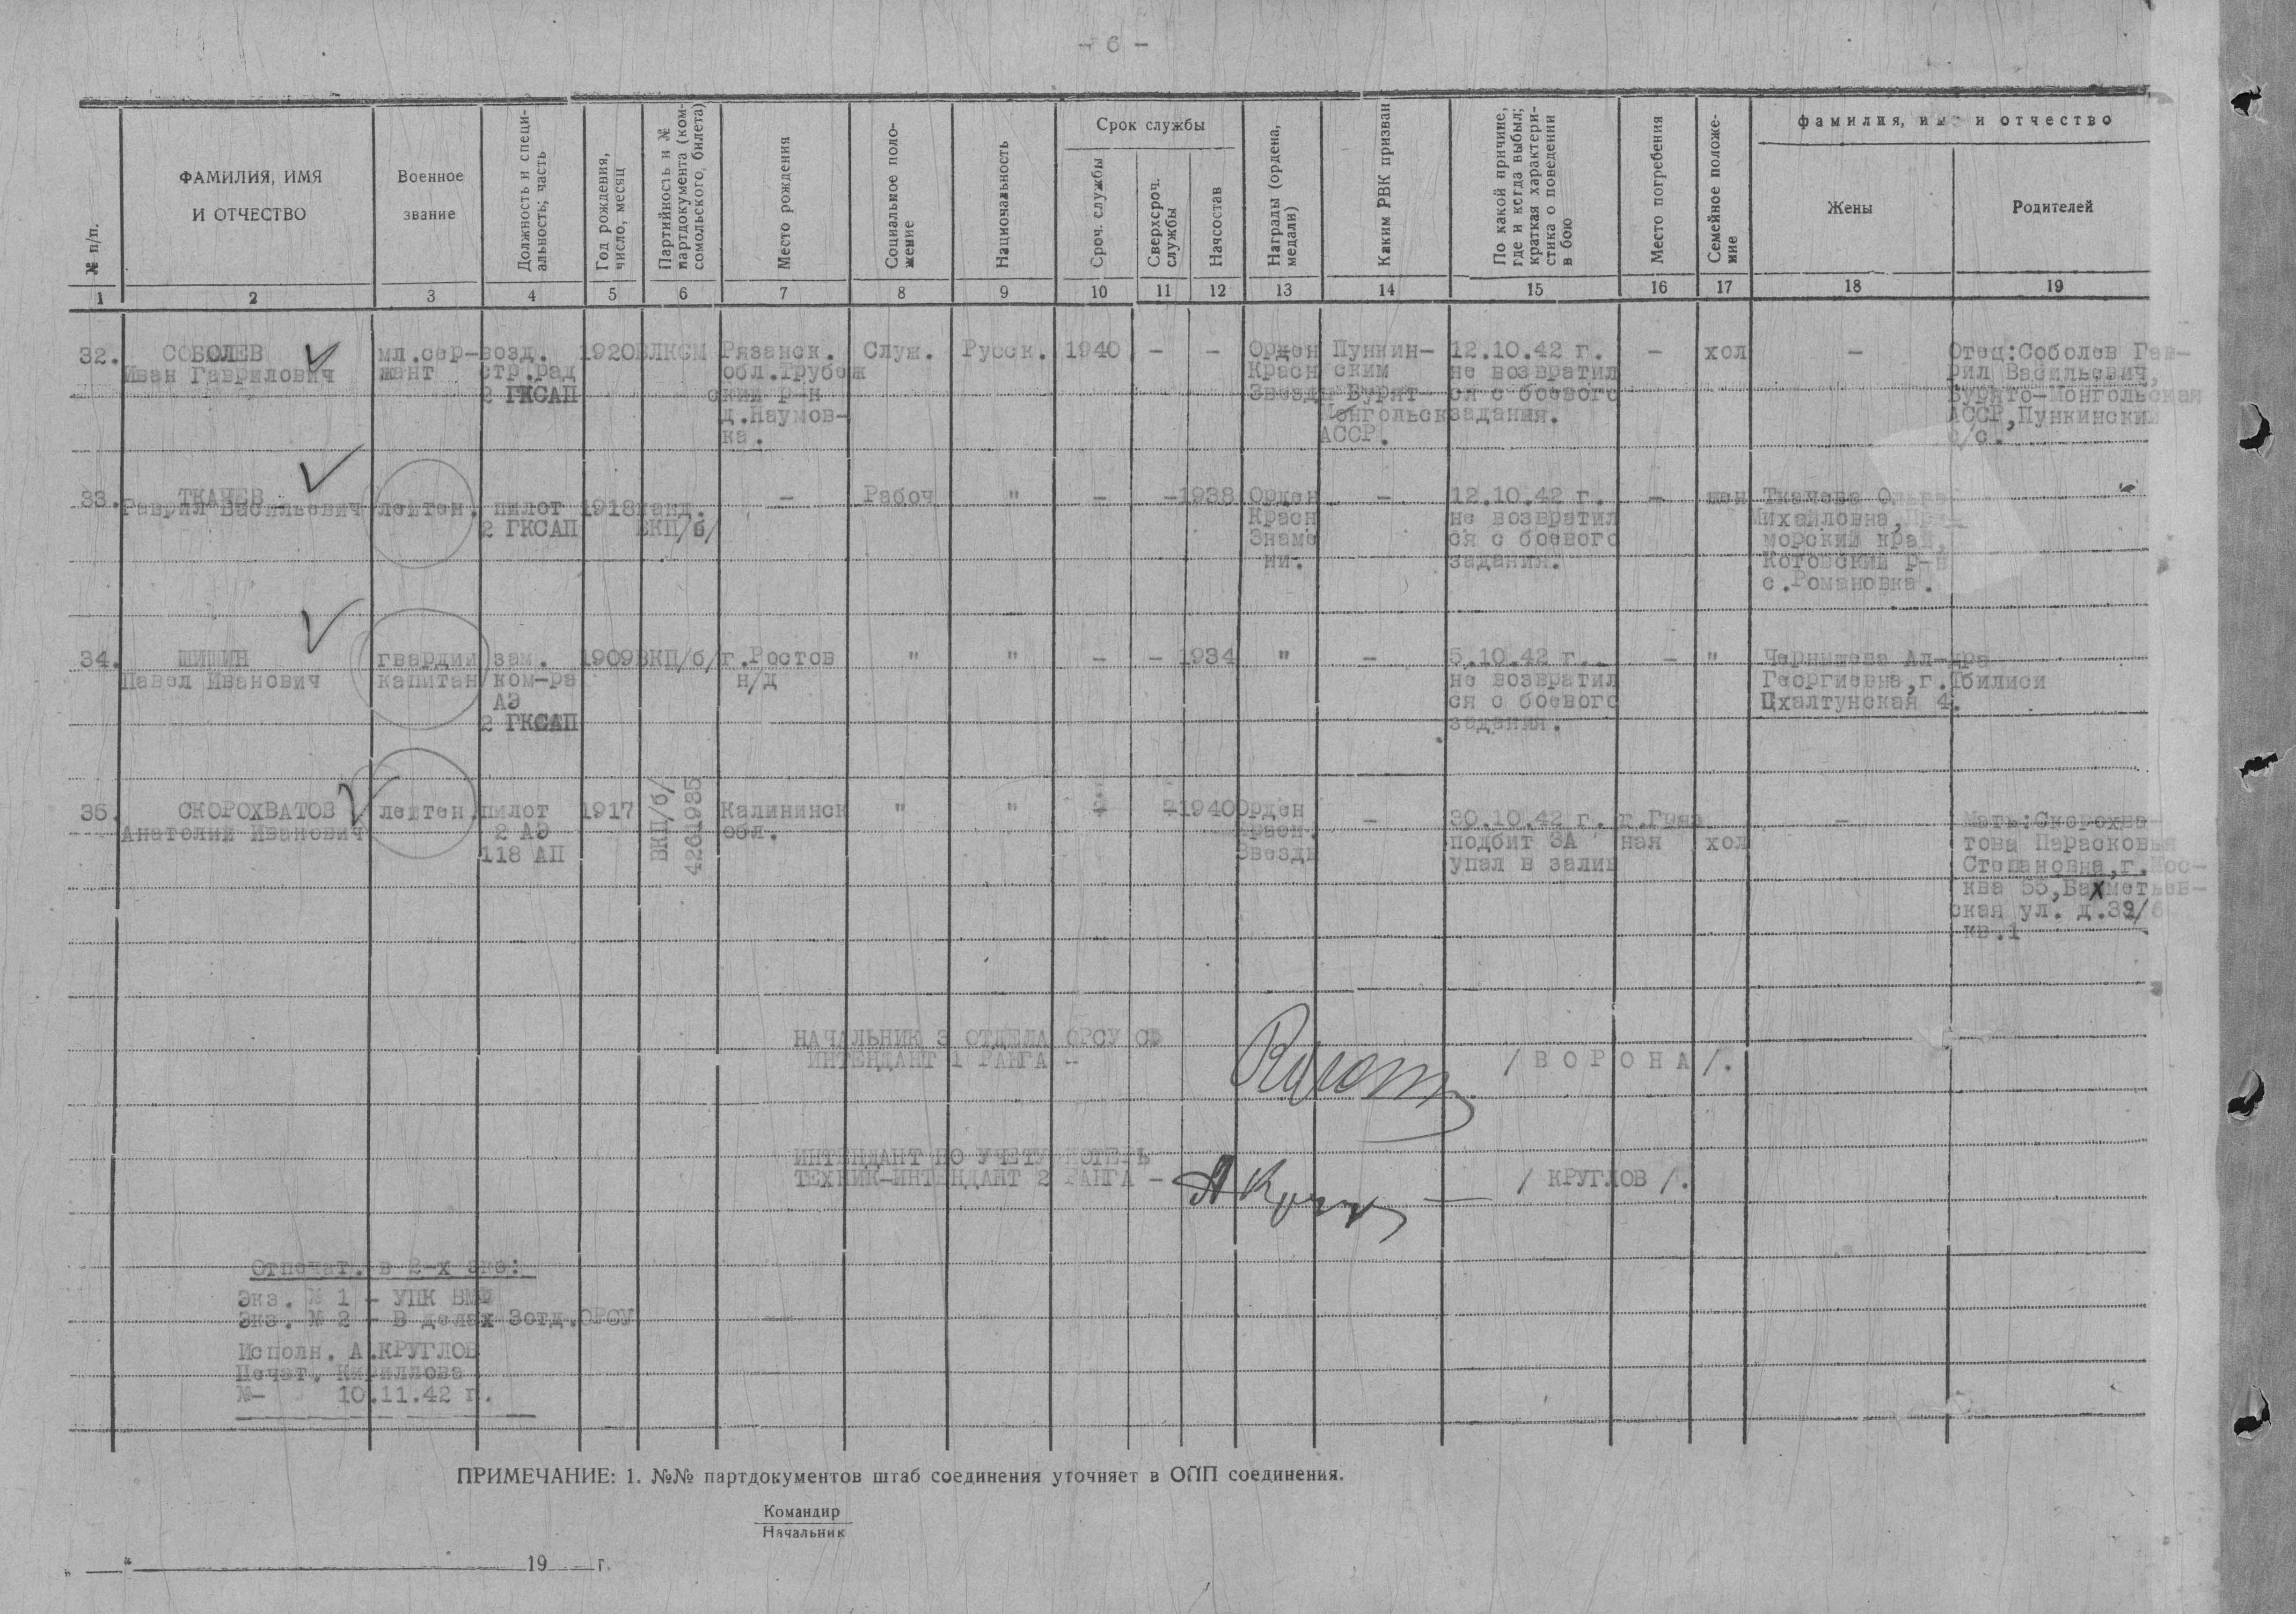 - 6 -
№ п/п.
ФАМИЛИЯ, ИМЯ
И ОТЧЕСТВО
Военное
звание
Должность и специ-
альность; часть
Год рождения,
число, месяц
Партийность и №
партдокумента (ком-
сомольского, билета)
Место рождения
Социальное поло-
жение
Национальность
Срок службы
Сроч. службы
Сверхсроч.
службы
Начсостав
Награды (ордена,
медали)
Каким РВК призван
По какой причине,
где и когда выбыл;
краткая характери-
стика о поведении
в бою
Место погребения
Семейное положе-
ние
фамилия, имя и отчество
Жены
Родителей
1 2 3 4 5 6 7 8 9 10 11 12 13 14 15 16 17 18 19
32.
СОБОЛЕВ
Иван Гаврилович
мл.сер-
жант
возд.
стр.рад
2 ГКСАП
1920
ВЛКСМ
Рязанск.
обл.Трубеж
ский р-н
д.Наумов-
ка.
Служ.
Русск.
1940
-
-
Орден
Красн
Звезды
Пункин-
ским
Бурят-
Монгольск
АССР.
12.10.42 г.
не возвратил
ся с боевого
задания.
-
хол
-
Отец:Соболев Гав-
рил Васильевич,
Бурято-Монгольская
АССР,Пункинский
с/с.
33.
ТКАЧЕВ
Гаврил Васильевич
лейтен.
пилот
2 ГКСАП
1918
канд.
ВКП/б/
-
Рабоч
"
-
-
1938
Орден
Красн
Знаме
ни.
-
12.10.42 г.
не возвратил
ся с боевого
задания.
-
жен
Ткачева Ольга
Михайловна,
морский край,
Котовский р-н
с.Романовка.
34.
ШИШИН
Павел Иванович
гвардии
капитан
зам.
ком-ра
АЭ
2 ГКСАП
1909
ВКП/б/
г.Ростов
н/д
"
"
-
-
1934
"
-
5.10.42 г.
не возвратил
ся с боевого
задания.
-
"
Чернышева Ал-дра
Георгиевна,г.Тбилиси
Цхалтунская 4.
35.
СКОРОХВАТОВ
Анатолий Иванович
лейтен.
пилот
2 АЭ
118 АП
1917
ВКП/б/
4261935
Калининск
обл.
"
"
-
-
1940
Орден
Красн.
Звезды
-
30.10.42 г.
подбит ЗА
упал в залив
г.Гряз
ная
хол
-
Мать:Скорохва-
това Парасковья
Степановна,г.Мос-
ква 55,Бахметьев-
ская ул. д.39/6
кв.1
НАЧАЛЬНИК 3 ОТДЕЛА ОРСУ СФ
ИНТЕНДАНТ 1 РАНГА -
/ ВОРОНА /.
ИНТЕНДАНТ ПО УЧЕТУ ПОТЕРЬ
ТЕХНИК-ИНТЕНДАНТ 2 РАНГА -
/ КРУГЛОВ /.
Отпечат. в 2-х экз:
Экз. № 1 - УПК ВМФ
Экз. № 2 - В делах 3отд.ОРСУ
Исполн. А.КРУГЛОВ
Печат. Кириллова
№- 10.11.42 г.
ПРИМЕЧАНИЕ: 1. №№ партдокументов штаб соединения уточняет в ОПП соединения.
Командир
Начальник
„ " 19 г.